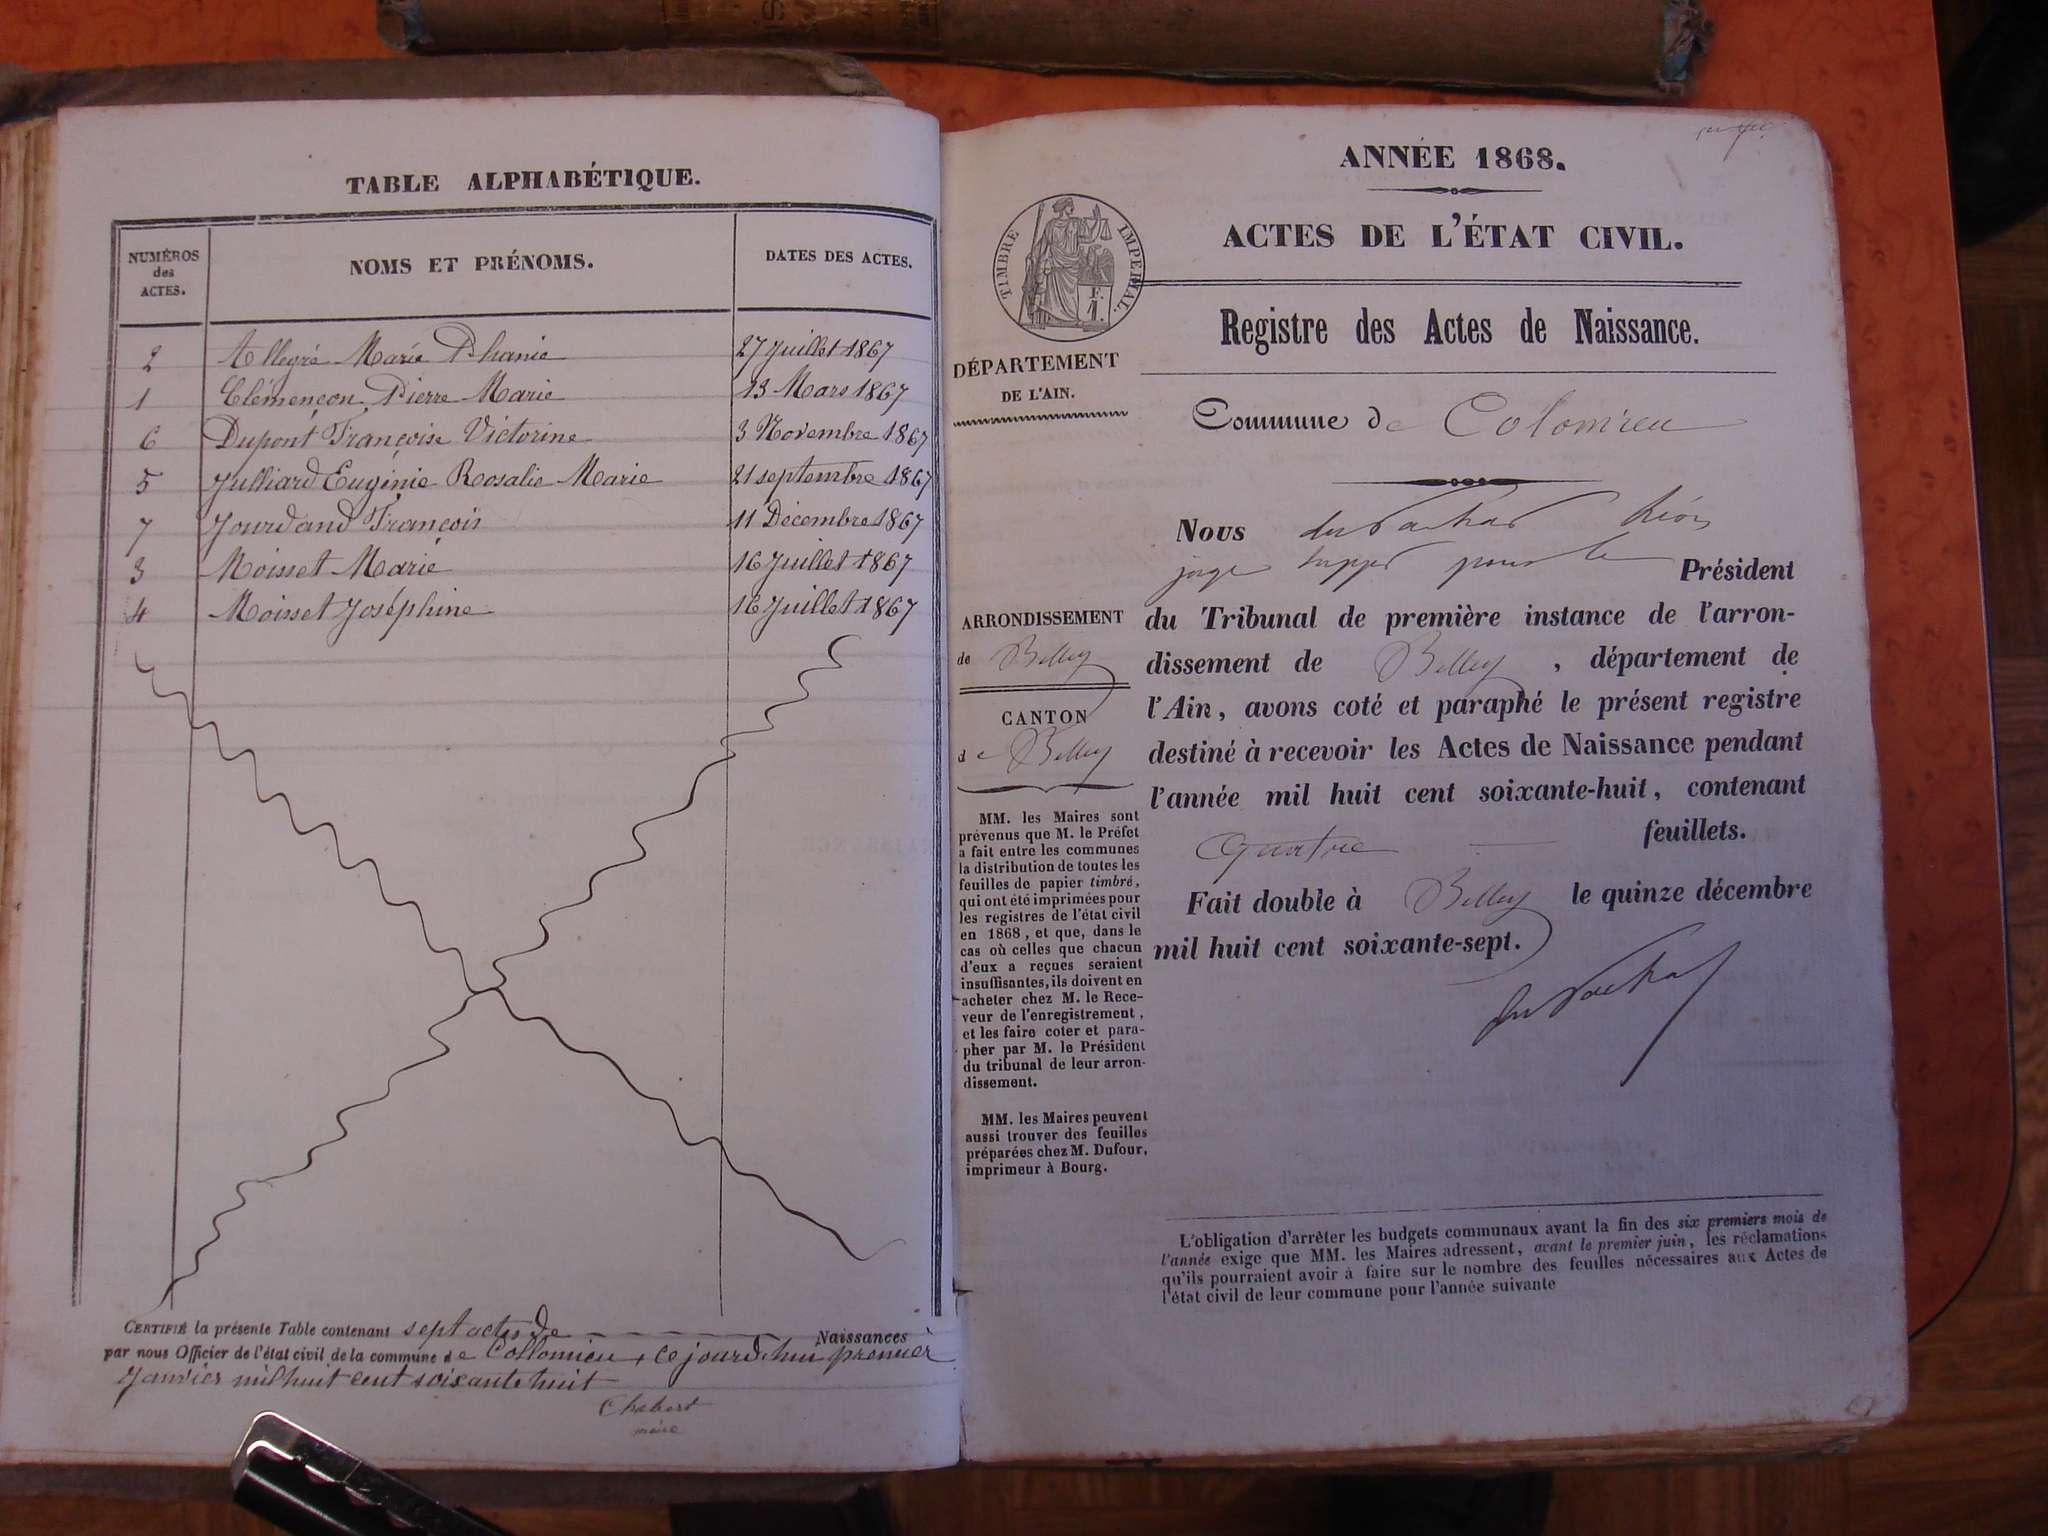 TABLE ALPHABÉTIQUE.
NUMÉROS des ACTES. NOMS ET PRÉNOMS. DATES DES ACTES.
2 Allegré Marie Phanie 27 Juillet 1867
1 Clémençon Pierre Marie 13 Mars 1867
6 Dupont Françoise Victorine 3 Novembre 1867
5 Julliard Eugénie Rosalie Marie 21 septembre 1867
7 Jourdand François 11 Décembre 1867
3 Moisset Marie 16 Juillet 1867
4 Moisset Joséphine 16 Juillet 1867
CERTIFIÉ la présente Table contenant sept actes de Naissances
par nous Officier de l'état civil de la commune de Collomieu, ce jourd'hui premier
Janvier mil huit cent soixante huit
Chabert
maire
ANNÉE 1868.
ACTES DE L'ÉTAT CIVIL.
TIMBRE IMPERIAL.
F.
1.
Registre des Actes de Naissance.
DÉPARTEMENT
DE L'AIN.
Commune de Colomieu
Nous
juge supp pour le Président
ARRONDISSEMENT
de Belley
CANTON
de Belley
du Tribunal de première instance de l'arron-
dissement de Belley, département de
l'Ain, avons coté et paraphé le présent registre
destiné à recevoir les Actes de Naissance pendant
l'année mil huit cent soixante-huit, contenant
Quatre feuillets.
Fait double à Belley le quinze décembre
mil huit cent soixante-sept.
MM. les Maires sont
prévenus que M. le Préfet
a fait entre les communes
la distribution de toutes les
feuilles de papier timbré,
qui ont été imprimées pour
les registres de l'état civil
en 1868, et que, dans le
cas où celles que chacun
d'eux a reçues seraient
insuffisantes, ils doivent en
acheter chez M. le Rece-
veur de l'enregistrement,
et les faire coter et para-
pher par M. le Président
du tribunal de leur arron-
dissement.
MM. les Maires peuvent
aussi trouver des feuilles
préparées chez M. Dufour,
imprimeur à Bourg.
L'obligation d'arrêter les budgets communaux avant la fin des six premiers mois de
l'année exige que MM. les Maires adressent, avant le premier juin, les réclamations
qu'ils pourraient avoir à faire sur le nombre des feuilles nécessaires aux Actes de
l'état civil de leur commune pour l'année suivante